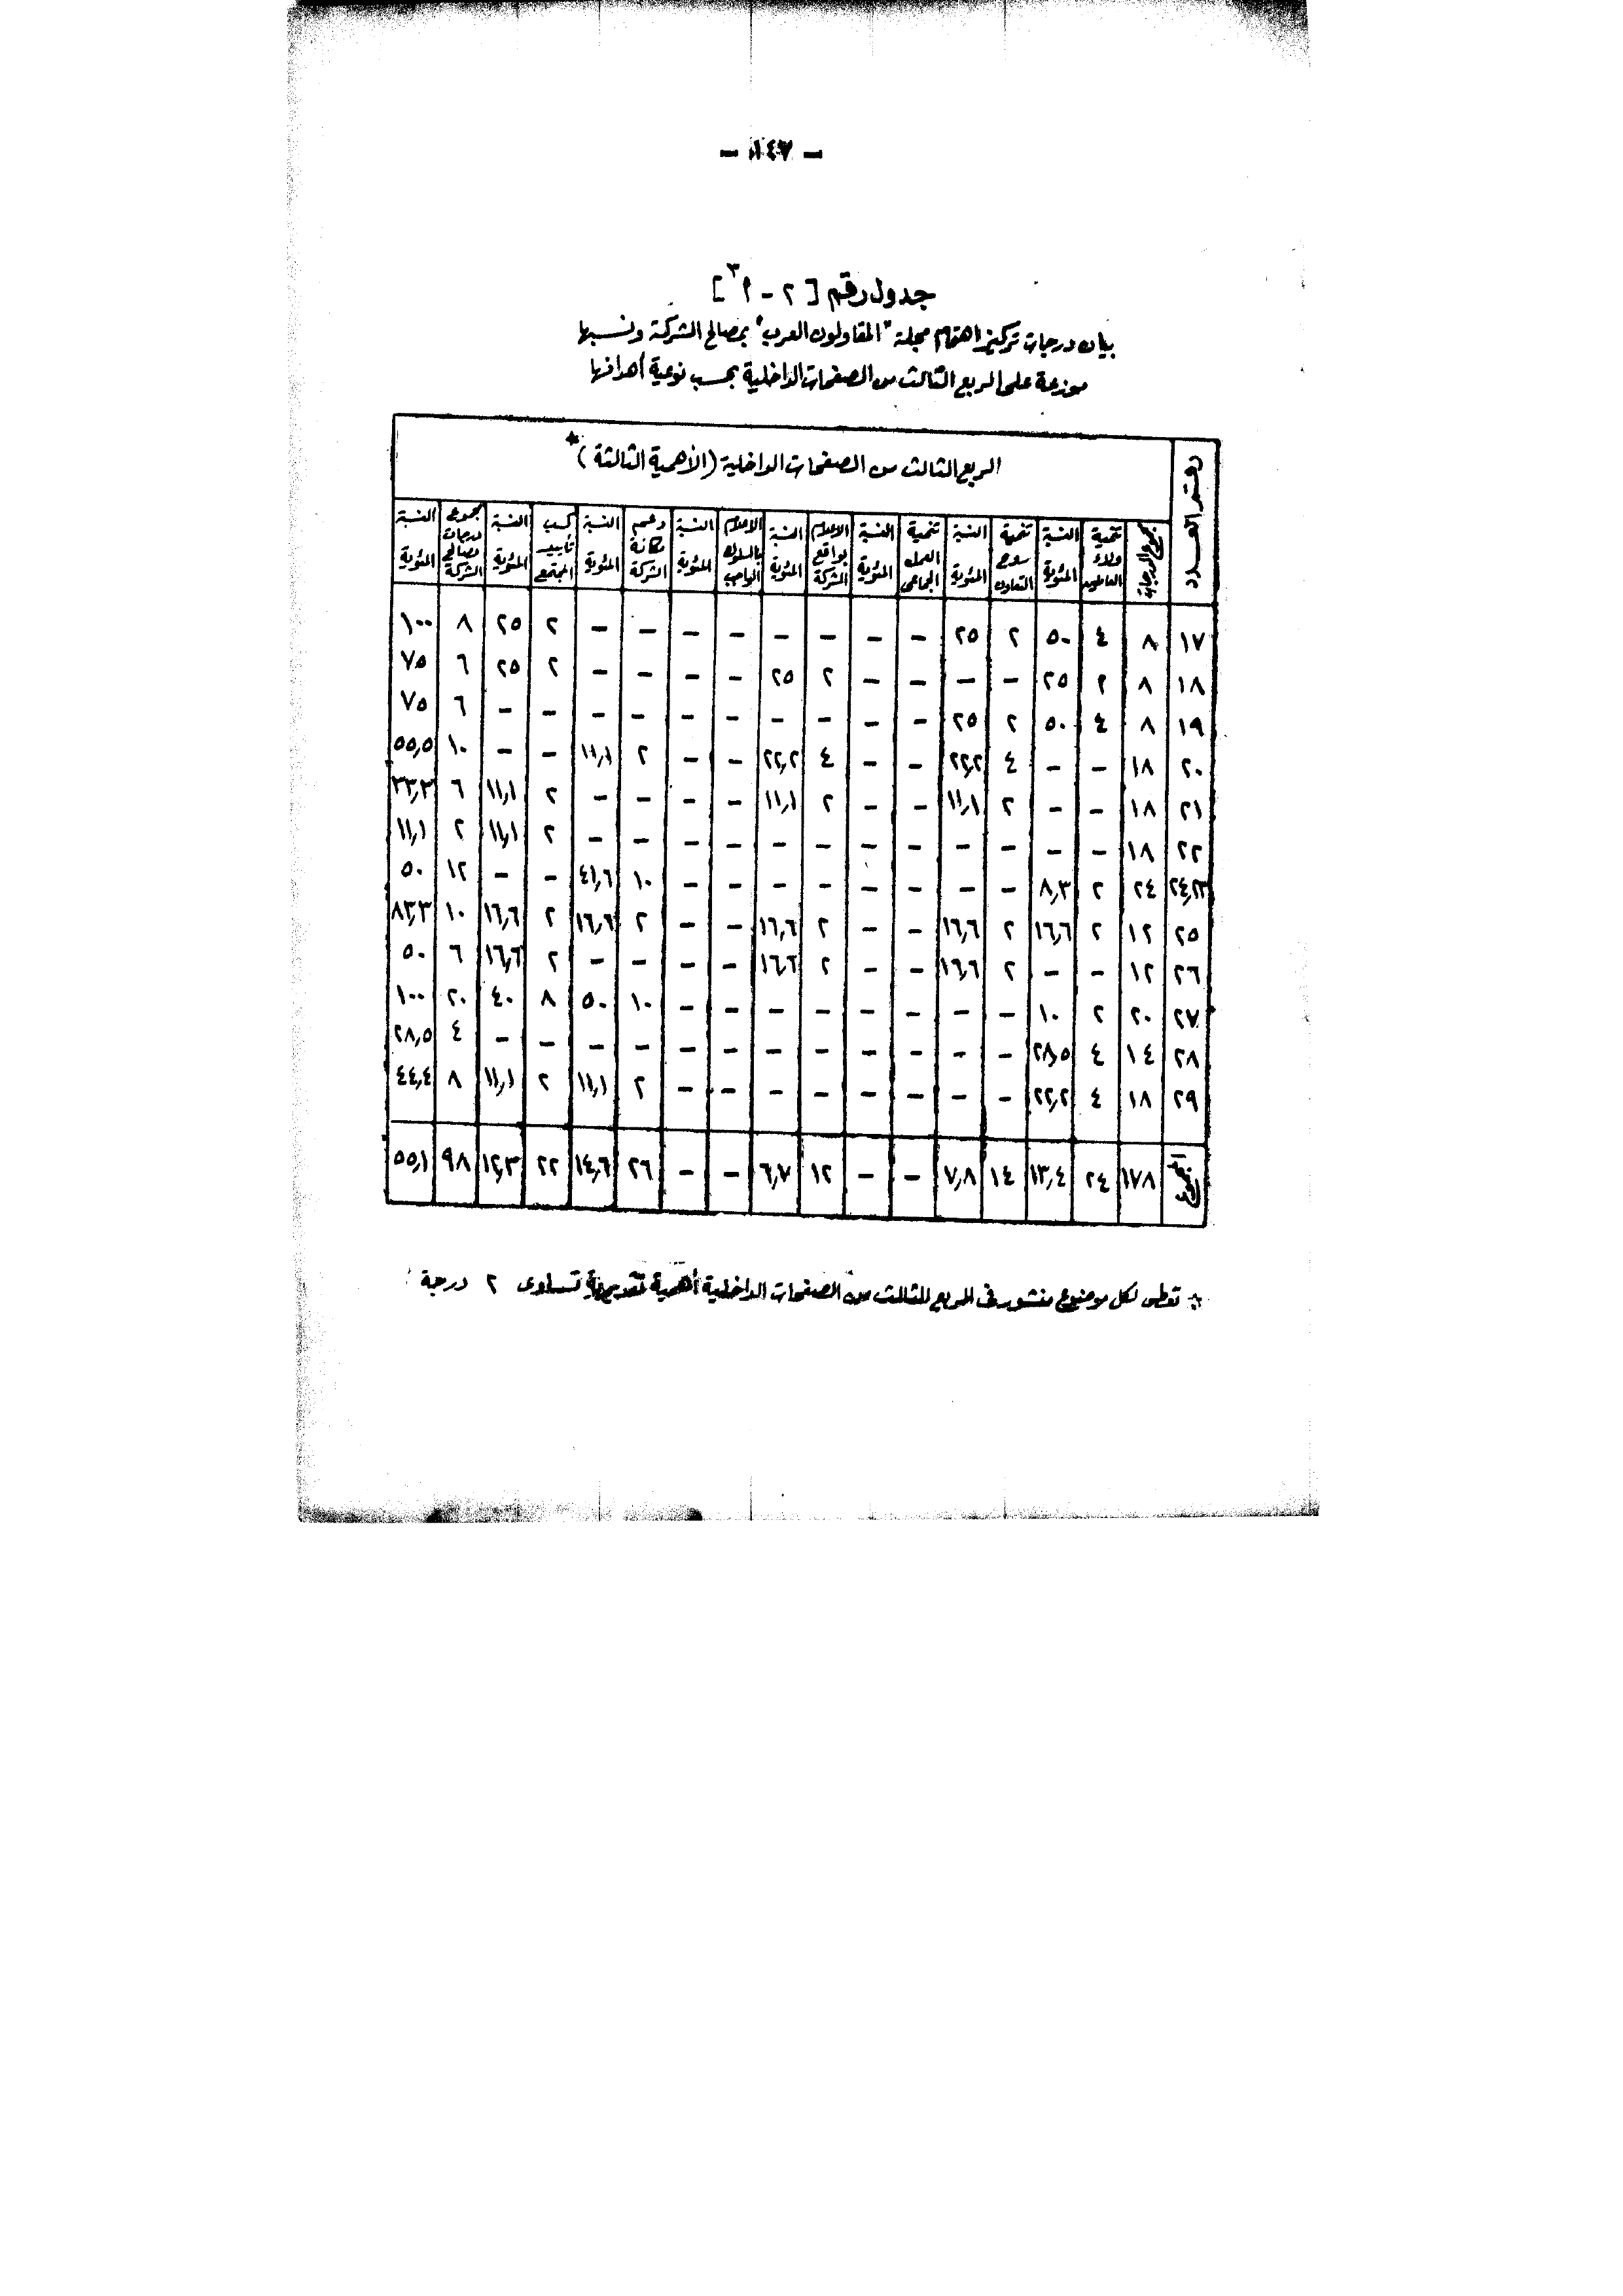 - ١٤٧ -
جدول رقم [ ٢ - ٣١ ]
بيان درجات تركيز اهتمام مجلة "المقاولون العرب" بمصالح الشركة ونسبها
موزعة على الربع الثالث من الصفحات الداخلية بحسب نوعية أهدافها
رقم العدد الربع الثالث من الصفحات الداخلية (الأهمية الثالثة) *
مجموع الدرجات | تنمية ولاء العاملين | النسبة المئوية | تنمية روح التعاون | النسبة المئوية | تنمية العمل الجماعى | النسبة المئوية | الإعلام بواقع الشركة | النسبة المئوية | الإعلام بالسلوك الواجب | النسبة المئوية | دعم مكانة الشركة | النسبة المئوية | كسب تأييد المجتمع | النسبة المئوية | مجموع درجات مصالح الشركة | النسبة المئوية
١٧ ٨ ٤ ٥٠ ٢ ٢٥ - - - - - - - - ٢ ٢٥ ٨ ١٠٠
١٨ ٨ ٢ ٢٥ - - - - ٢ ٢٥ - - - - ٢ ٢٥ ٦ ٧٥
١٩ ٨ ٤ ٥٠ ٢ ٢٥ - - - - - - - - - - ٦ ٧٥
٢٠ ١٨ - - ٤ ٢٢,٢ - - ٤ ٢٢,٢ - - ٢ ١١,١ - - ١٠ ٥٥,٥
٢١ ١٨ - - ٢ ١١,١ - - ٢ ١١,١ - - - - ٢ ١١,١ ٦ ٣٣,٣
٢٢ ١٨ - - - - - - - - - - - - ٢ ١١,١ ٢ ١١,١
٢٤,٢٣ ٢٤ ٢ ٨,٣ - - - - - - - - ١٠ ٤١,٦ - - ١٢ ٥٠
٢٥ ١٢ ٢ ١٦,٦ ٢ ١٦,٦ - - ٢ ١٦,٦ - - ٢ ١٦,٦ ٢ ١٦,٦ ١٠ ٨٣,٣
٢٦ ١٢ - - ٢ ١٦,٦ - - ٢ ١٦,٦ - - - - ٢ ١٦,٦ ٦ ٥٠
٢٧ ٢٠ ٢ ١٠ - - - - - - - - ١٠ ٥٠ ٨ ٤٠ ٢٠ ١٠٠
٢٨ ١٤ ٤ ٢٨,٥ - - - - - - - - - - - - ٤ ٢٨,٥
٢٩ ١٨ ٤ ٢٢,٢ - - - - - - - - ٢ ١١,١ ٢ ١١,١ ٨ ٤٤,٤
المجموع ١٧٨ ٢٤ ١٣,٤ ١٤ ٧,٨ - - ١٢ ٦,٧ - - ٢٦ ١٤,٦ ٢٢ ١٢,٣ ٩٨ ٥٥,١
* تعطى لكل موضوع منشور فى الربع الثالث من الصفحات الداخلية أهمية تقديرية تساوى ٢ درجة